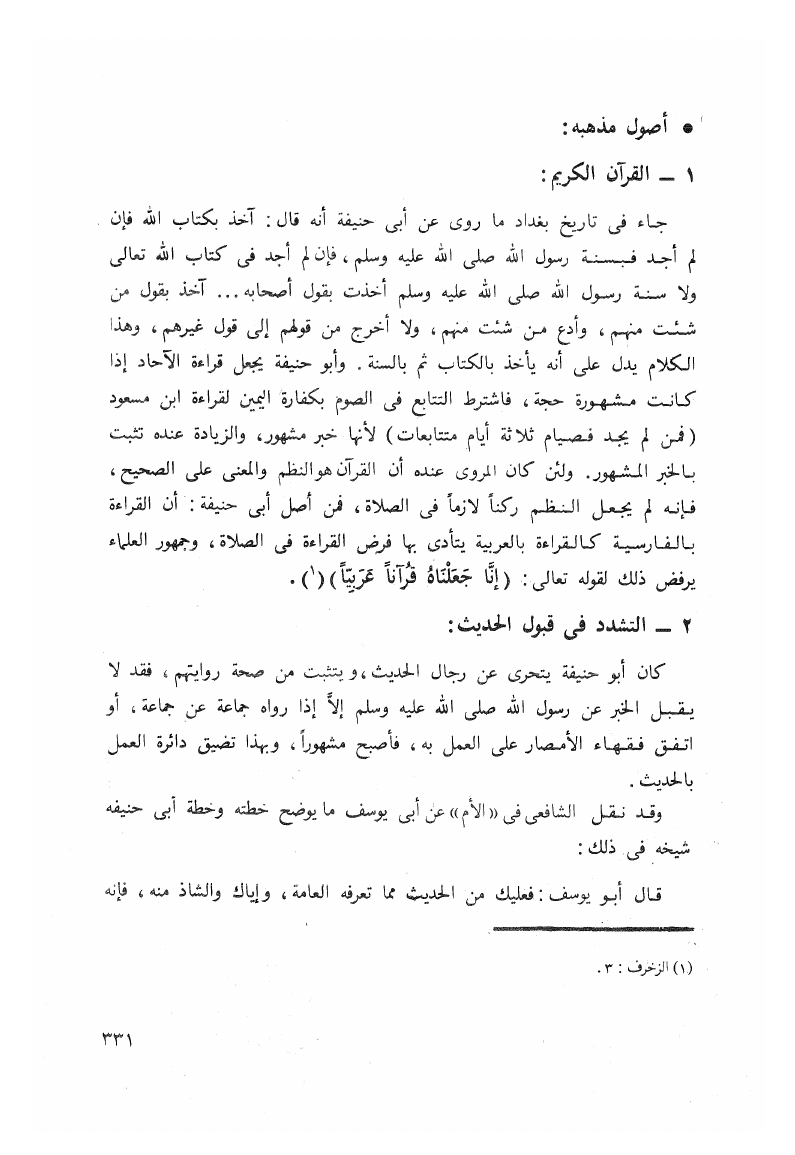 ● أصول مذهبه:
١ ــ القرآن الكريم:
جاء فى تاريخ بغداد ما روى عن أبى حنيفة أنه قال: آخذ بكتاب الله فإن
لم أجد فبسنة رسول الله صلى الله عليه وسلم، فإن لم أجد فى كتاب الله تعالى
ولا سنة رسول الله صلى الله عليه وسلم أخذت بقول أصحابه... آخذ بقول من
شئت منهم، وأدع من شئت منهم، ولا أخرج من قولهم إلى قول غيرهم، وهذا
الكلام يدل على أنه يأخذ بالكتاب ثم بالسنة. وأبو حنيفة يجعل قراءة الآحاد إذا
كانت مشهورة حجة، فاشترط التتابع فى الصوم بكفارة اليمين لقراءة ابن مسعود
(فمن لم يجد فصيام ثلاثة أيام متتابعات) لأنها خبر مشهور، والزيادة عنده تثبت
بالخبر المشهور. ولئن كان المروى عنده أن القرآن هو النظم والمعنى على الصحيح،
فإنه لم يجعل النظم ركناً لازماً فى الصلاة، فمن أصل أبى حنيفة: أن القراءة
بالفارسية كالقراءة بالعربية يتأدى بها فرض القراءة فى الصلاة، وجمهور العلماء
يرفض ذلك لقوله تعالى: (إِنَّا جَعَلْنَاهُ قُرْآناً عَرَبِيّاً)(١).
٢ ــ التشدد فى قبول الحديث:
كان أبو حنيفة يتحرى عن رجال الحديث، ويتثبت من صحة روايتهم، فقد لا
يقبل الخبر عن رسول الله صلى الله عليه وسلم إلاَّ إذا رواه جماعة عن جماعة، أو
اتفق فقهاء الأمصار على العمل به، فأصبح مشهوراً، وبهذا تضيق دائرة العمل
بالحديث.
وقد نقل الشافعى فى «الأم» عن أبى يوسف ما يوضح خطته وخطة أبى حنيفه
شيخه فى ذلك:
قال أبو يوسف: فعليك من الحديث مما تعرفه العامة، وإياك والشاذ منه، فإنه
(١) الزخرف: ٣.
٣٣١